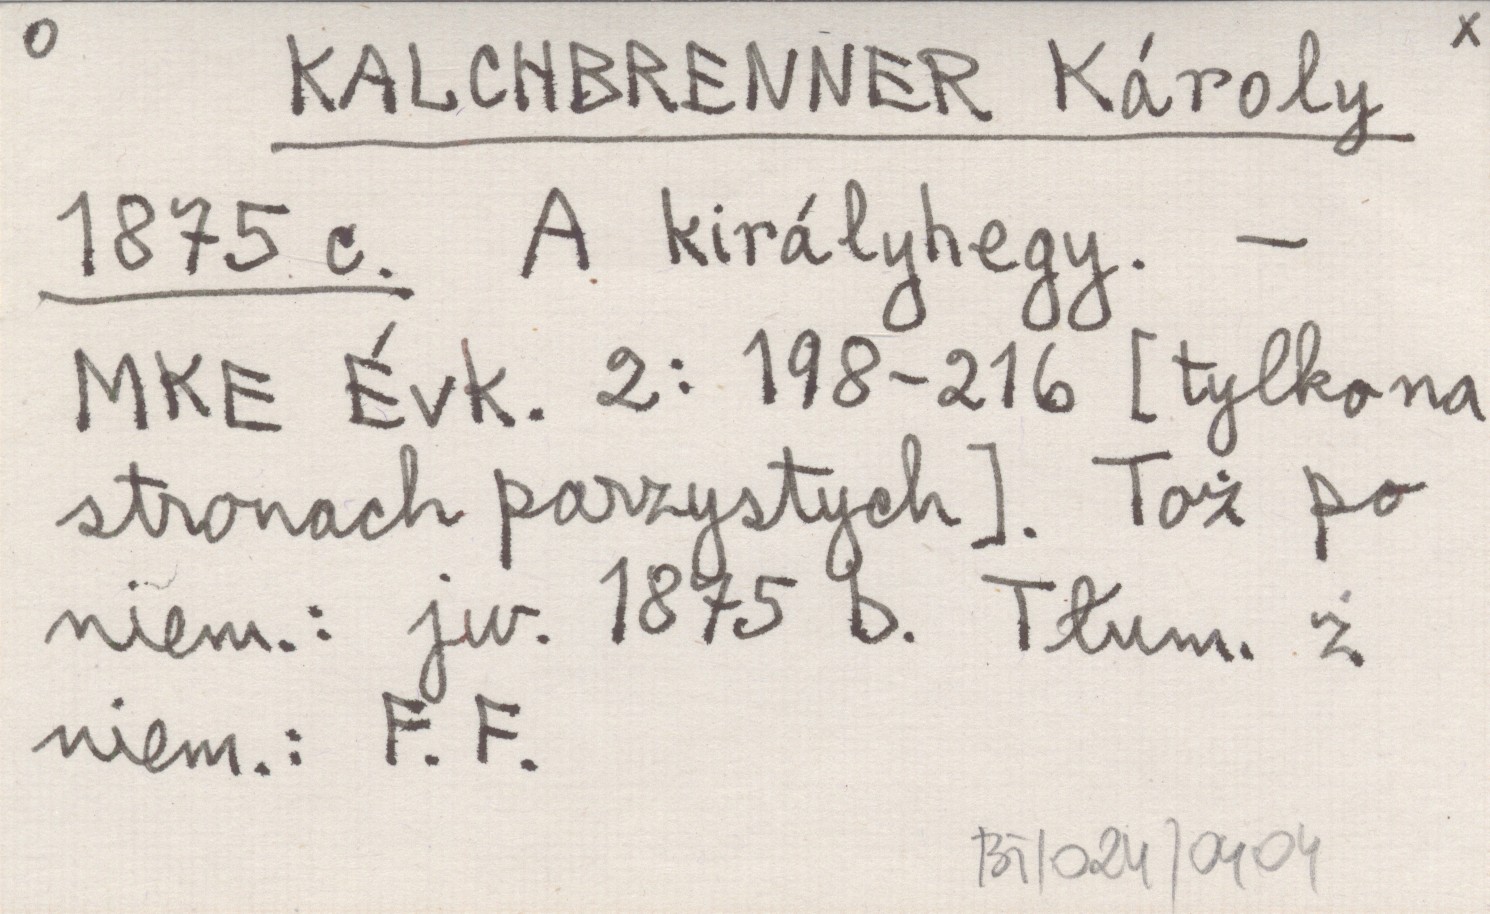 o KALCHBRENNER Károly x
1875 c. A királyhegy. —
MKE Évk. 2: 198-216 [tylko na
stronach parzystych]. Toż po
niem.: jw. 1875 b. Tłum. z
niem.: F. F.
BT/024/0404